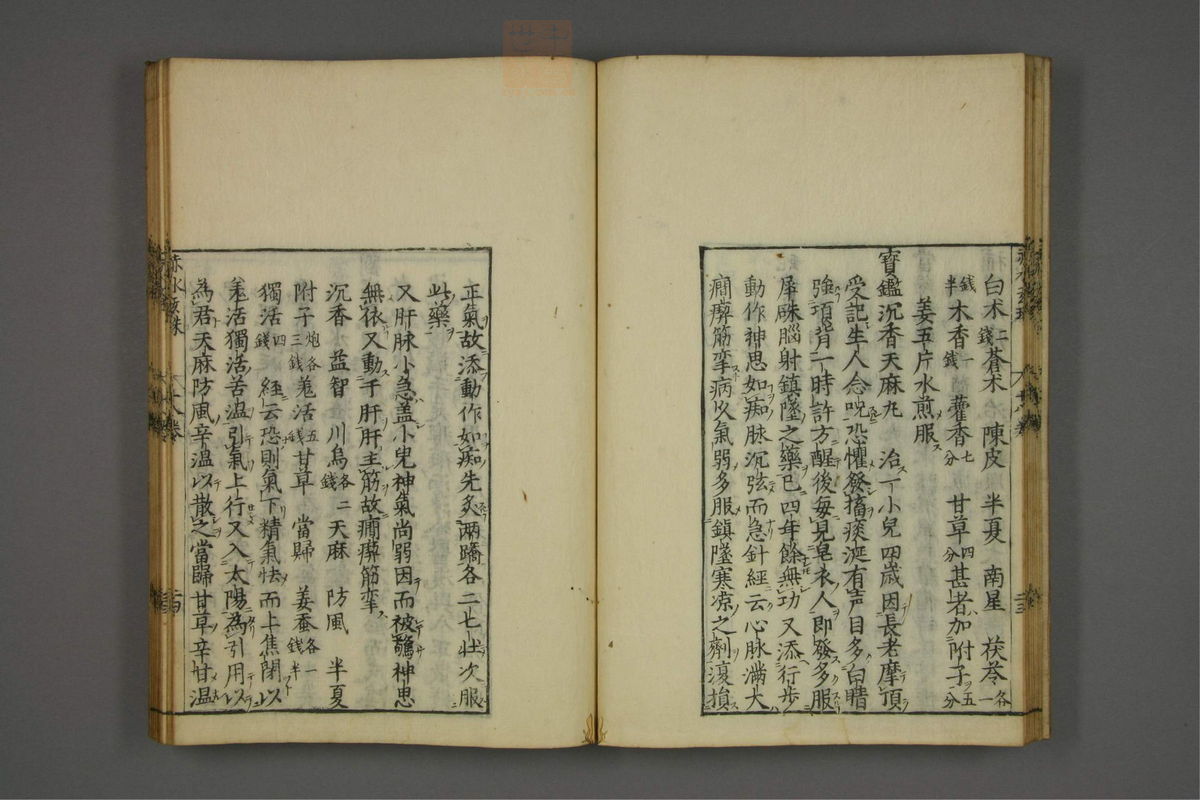 白朮二錢蒼朮 陳皮 半夏 南星 茯苓各一
錢半木香一錢藿香七分 甘草四分甚者加附子五分
姜五片水煎服
寶鑑沉香天麻丸 治一小兒四歳因長老摩頂
受記生人念呪恐懼發搐痰涎有声目多白睛
強項背一時許方醒後毎見皂衣人即發多服
犀硃腦射鎮墜之藥已四年餘無功又添行步
動作神思如痴脉沉弦而急針經云心脉滿大
癇瘈筋攣病久氣弱多服鎮墜寒凉之劑復損
正氣故添動作如痴先炙兩蹻各二七壮次服
此藥
又肝脉小急盖小兒神氣尚弱因而被驚神思
無依又動于肝肝主筋故癇瘈筋攣
沉香 益智 川烏各二錢天麻 防風 半夏
附子炮各三錢羗活五錢甘草 當歸 姜蚕各一錢半
獨活四錢 經云恐則氣下精氣怯而上焦閉以
羗活獨活苦温引氣上行又入太陽為引用以
為君天麻防風辛温以散之當歸甘草辛甘温
赤水玄珠 八卷